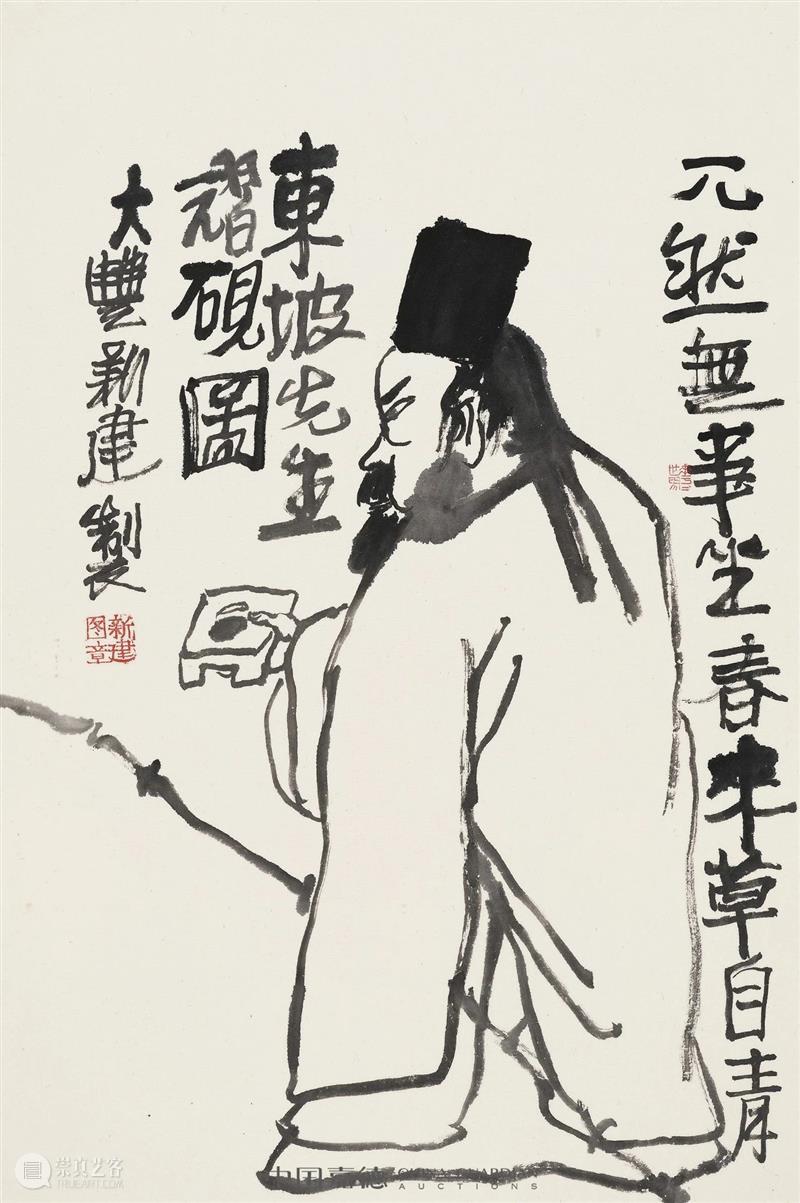 兀然無事坐春來草自青
東坡先生
翫硯圖
大豐新建製
新建
图章
崇真艺客
WWW.TRUEART.COM
中国嘉德 CHINA GUARDIAN
AUCTIONS